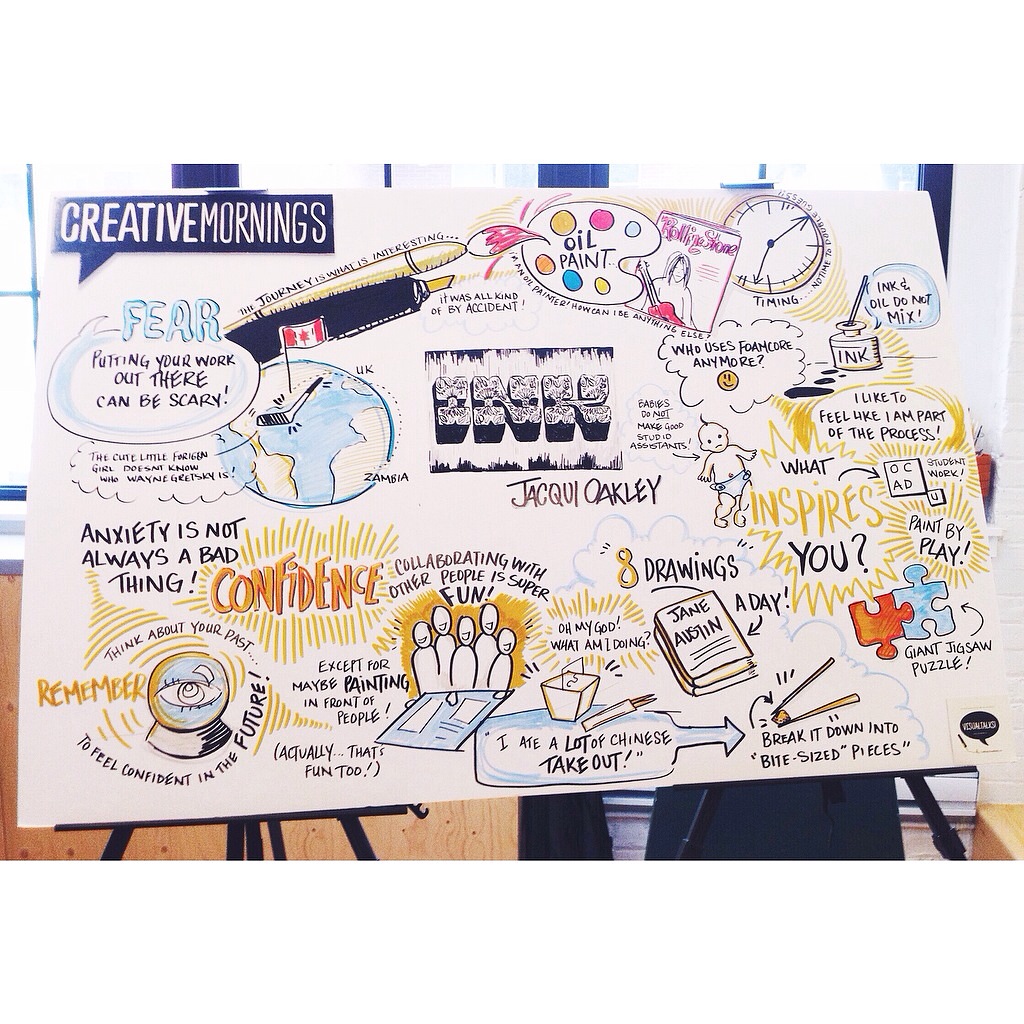 CREATIVEMORNINGS
THE JOURNEY IS WHAT IS INTERESTING...
IT WAS ALL KIND
OF BY ACCIDENT!
OIL
PAINT...
I'M AN OIL PAINTER! HOW CAN I BE ANYTHING ELSE?
Rolling Stone
TIMING... NO TIME TO DOUBLE GUESS!!
INK &
OIL DO NOT
MIX!
INK
FEAR
PUTTING YOUR WORK
OUT THERE
CAN BE SCARY!
UK
ZAMBIA
THE CUTE LITTLE FORIGEN
GIRL DOESNT KNOW
WHO WAYNE GRETSKY IS!
INK
JACQUI OAKLEY
WHO USES FOAMCORE
ANYMORE?
BABIES
DO NOT
MAKE GOOD
STUDIO
ASSISTANTS!
I LIKE TO
FEEL LIKE I AM PART
OF THE PROCESS!
WHAT
INSPIRES
YOU?
OC
AD
U
STUDENT
WORK!
PAINT BY
PLAY!
GIANT JIGSAW
PUZZLE!
ANXIETY IS NOT
ALWAYS A BAD
THING!
CONFIDENCE
COLLABORATING WITH
OTHER PEOPLE IS SUPER
FUN!
EXCEPT FOR
MAYBE PAINTING
IN FRONT OF
PEOPLE!
(ACTUALLY... THAT'S
FUN TOO!)
THINK ABOUT YOUR PAST...
REMEMBER
TO FEEL CONFIDENT IN THE FUTURE!
8 DRAWINGS
A DAY!
JANE
AUSTIN
OH MY GOD!
WHAT AM I DOING?
"I ATE A LOT OF CHINESE
TAKE OUT!"
BREAK IT DOWN INTO
"BITE-SIZED" PIECES"
VISUALTALKS!